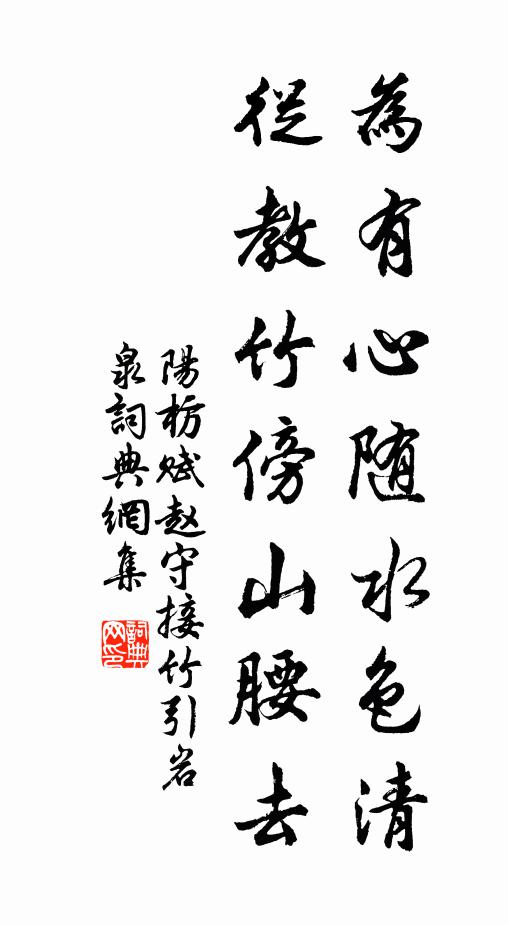 為有心随水色清
從教竹傍山腰去
陽枋賦赵守接竹引岩
泉詞典網集
詞典网印